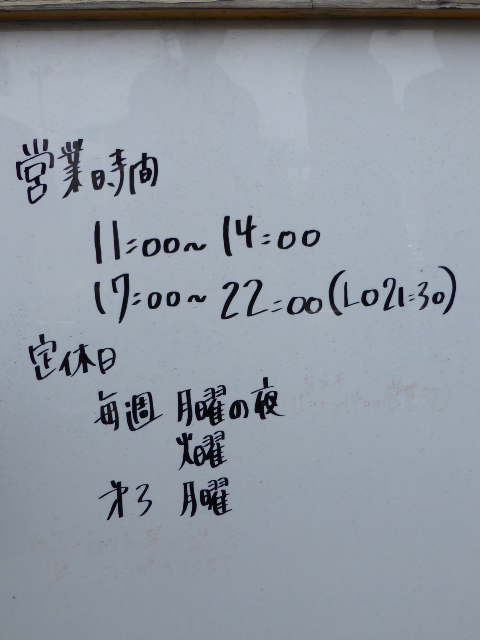 営業時間
11:00~14:00
17:00~22:00(LO21:30)
定休日
毎週 月曜の夜
火曜
第3 月曜